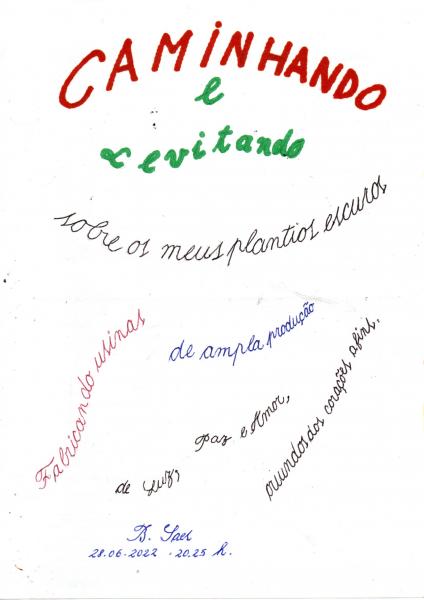 CAMINHANDO
e
Levitando
sobre os meus plantios escuros
Fabricando usinas
de ampla produção
de Luz,
Paz e Amor,
oriundos dos corações afins.
28.06.2022 - 20.25 h.